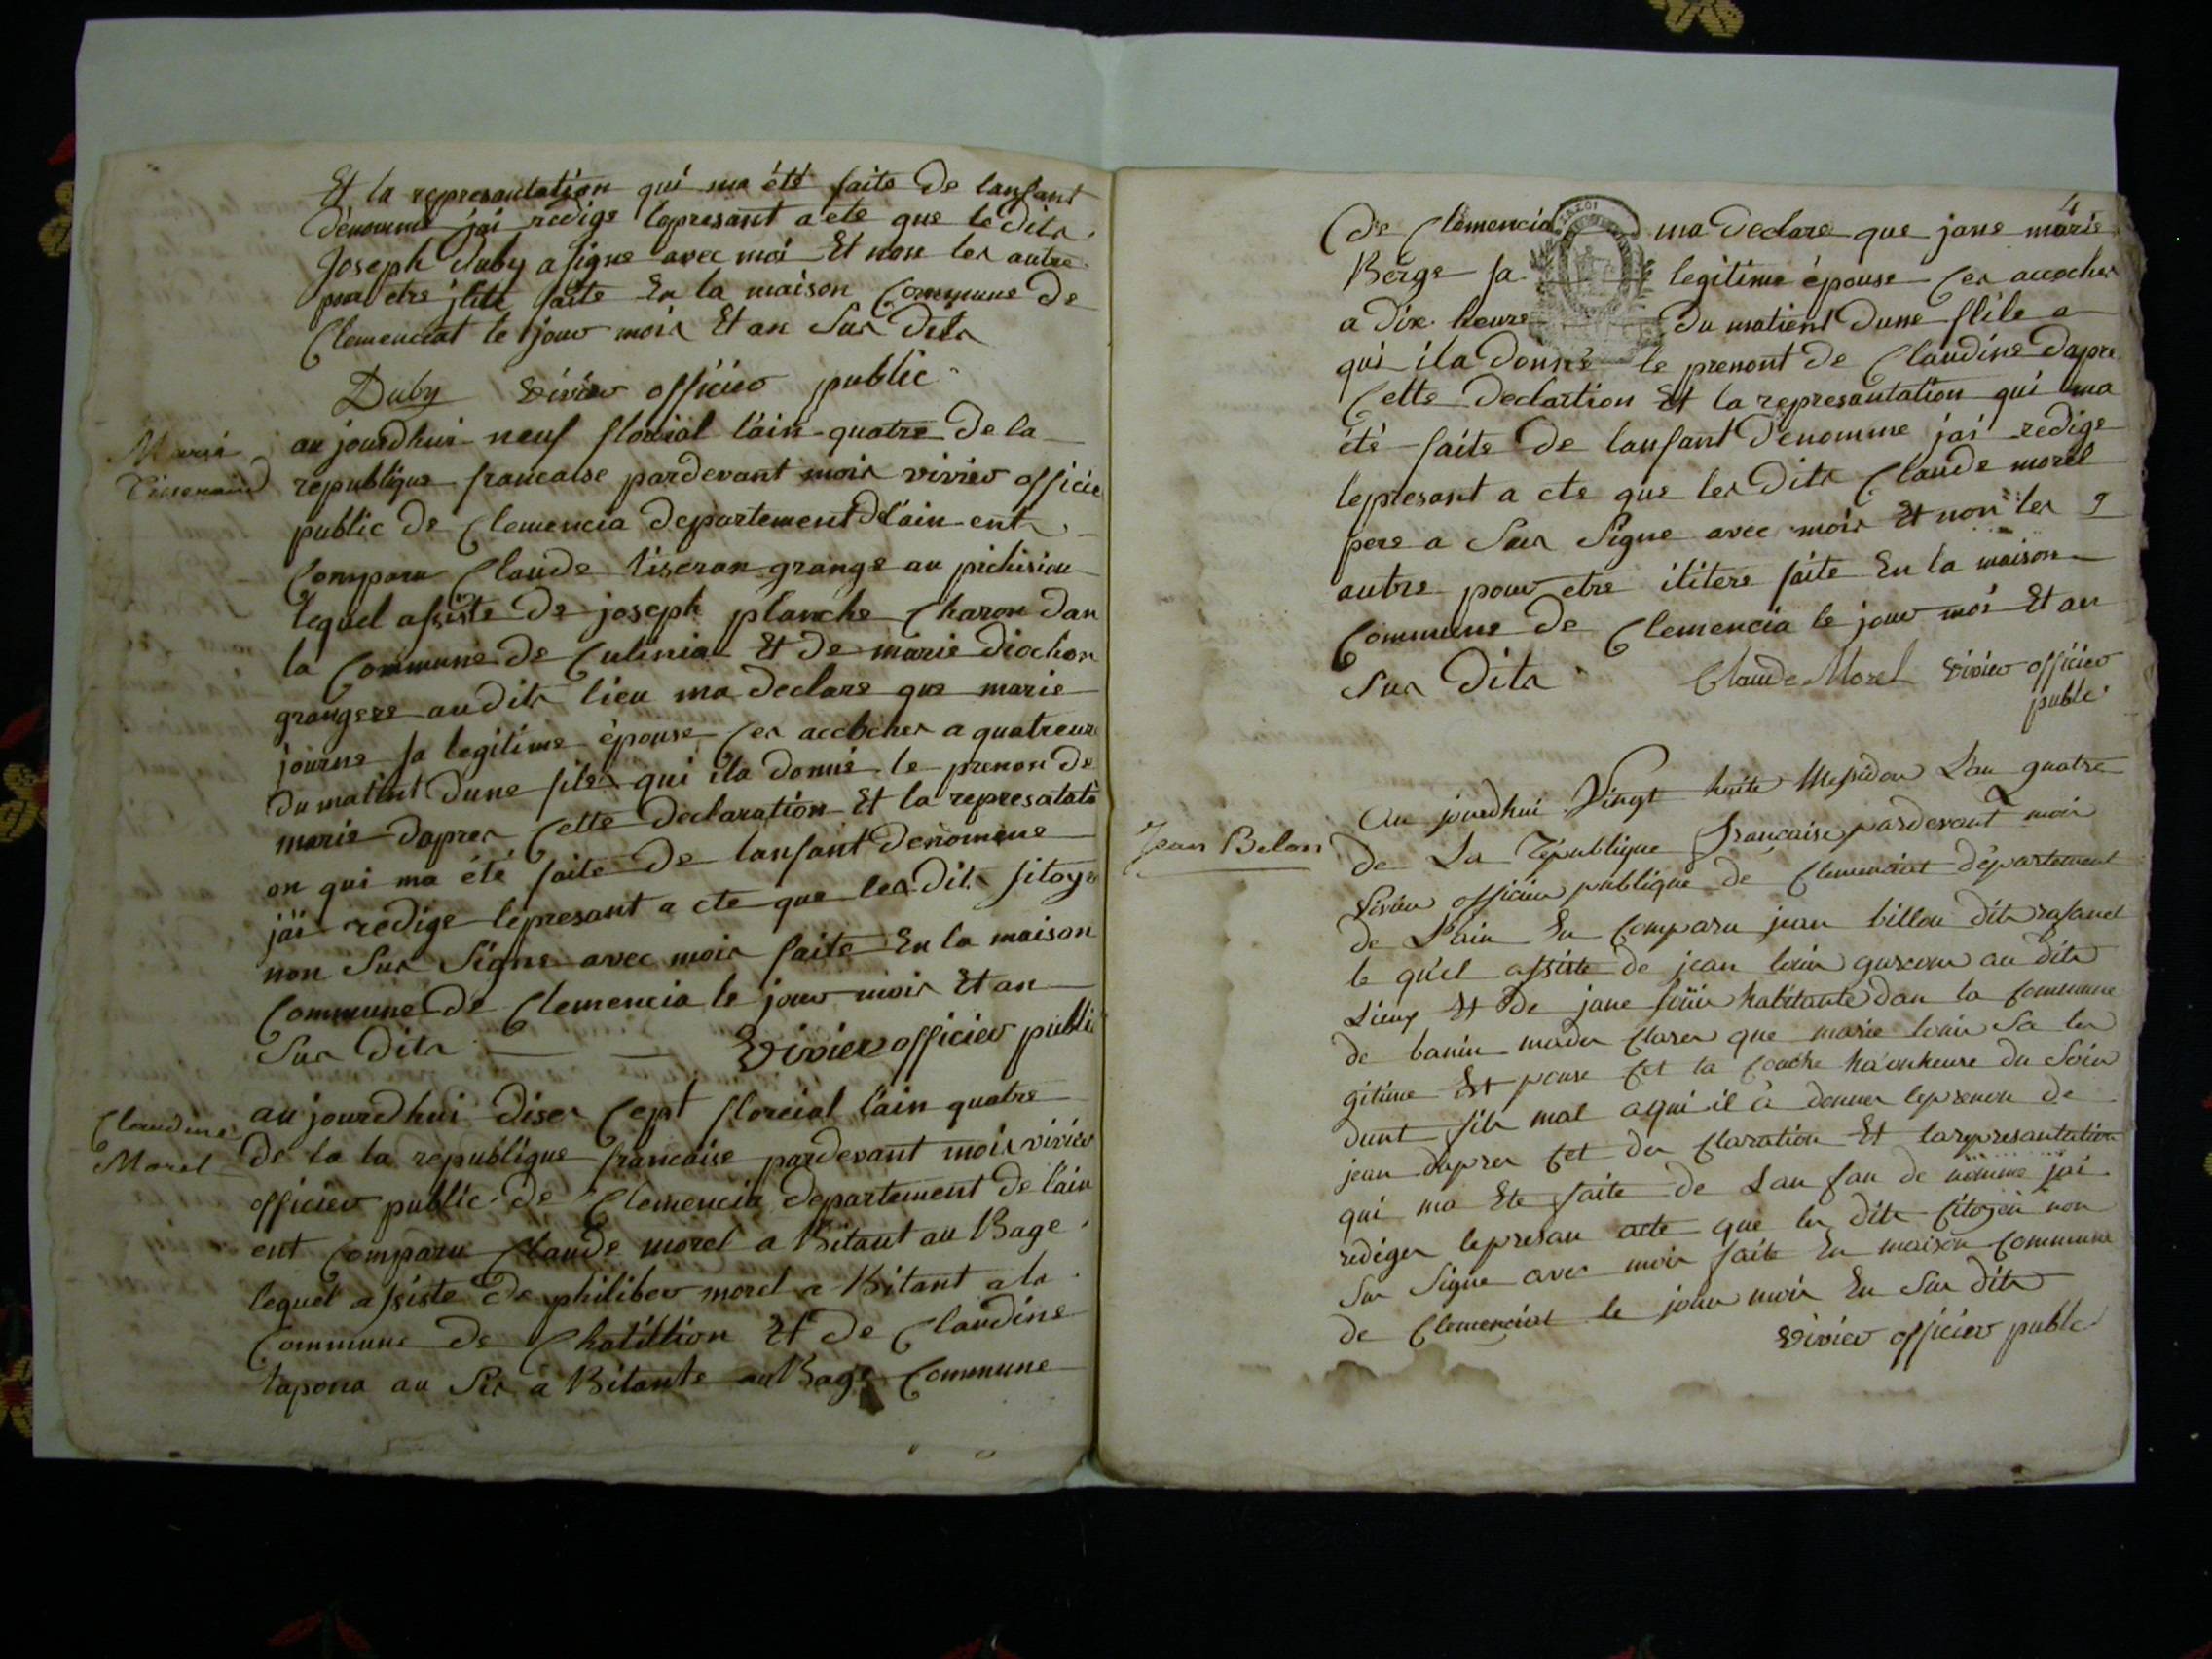 Et la represantation qui ma été faite de lanfant
dénommé j'ai redige lepresant a cte que le dits
Joseph Duby a signe avec moi Et non les autre
pour etre ilite faite En la maison Commune de
Clemenciat le jour mois Et an Sus dits
Duby vivier officier public
Marie
Tisserand
au jourdhui neuf floreial l'ain quatre de la
republique francaise pardevant mois vivier officie
public de Clemencia departement de l'ain ent
Comparu Claude tiseran grange au
lequel assiste de joseph planche Charon dan
la Commune de Culinia Et de marie diochon
grangere audits lieu ma declare que marie
journe sa legitime épouse Ces accocher a quatreure
du matint dune files qui ila donné le prenon de
marie dapres Cette declaration Et la represatati
on qui ma été faite de lanfant denomme
j'ai redige lepresant a cte que les dits sitoye
non Sus Signe avec mois faite En la maison
Commune de Clemencia le jour mois Et an
Sus dits vivier officier publi
Claudine
Morel
au jourdhui dises Cept floreial l'ain quatre
de la la republique francaise pardevant mois vivier
officier public de Clemencia departement de l'ain
ent Comparu Claude morel a Bitant au Bage
lequel assiste de philiber morel a Bitant a la
Commune de Chatillion Et de Claudine
tapona au Sis a Bitante au Bage Commune
4
de Clemencia ma declare que jane marie
Berge sa legitime épouse Ces accocher
a dix heure du matient dune flile a
qui ila donné le prenont de Claudine dapre
Cette declartion Et la represantation qui ma
été faite de lanfant dénomme j'ai redige
lepresant a cte que les dits Claude morel
pere a Sus Signe avec mois Et non les
autre pour etre ilitere faite En la maison
Commune de Clemencia le jour mois Et an
Sus dits Claude Morel vivier officier
publi
Jean Belon
Au jourdhui Vingt huite Messidor L'an quatre
de La République francaise pardevant mois
vivier officier publique de Clemenciat département
de L'ain En Comparu jean billon dits
le quel assiste de jean louis au dits
Lieux Et de jane louis habitante dan la Commune
de banin mades Clarer que marie louis Sa les
gitime Et pouse Cet ta Couche ha onheure du Soir
dunt fils mal aqui il à donner leprenon de
jean dapres Cet des Claration Et larepresantation
qui ma Ete faite de Lan fan de nomme j'ai
rediger lepresan acte que les dits Citoyen non
Sus Signe avec mois faite En maison Commune
de Clemenciat le jour mois En Sus dits
vivier officier public